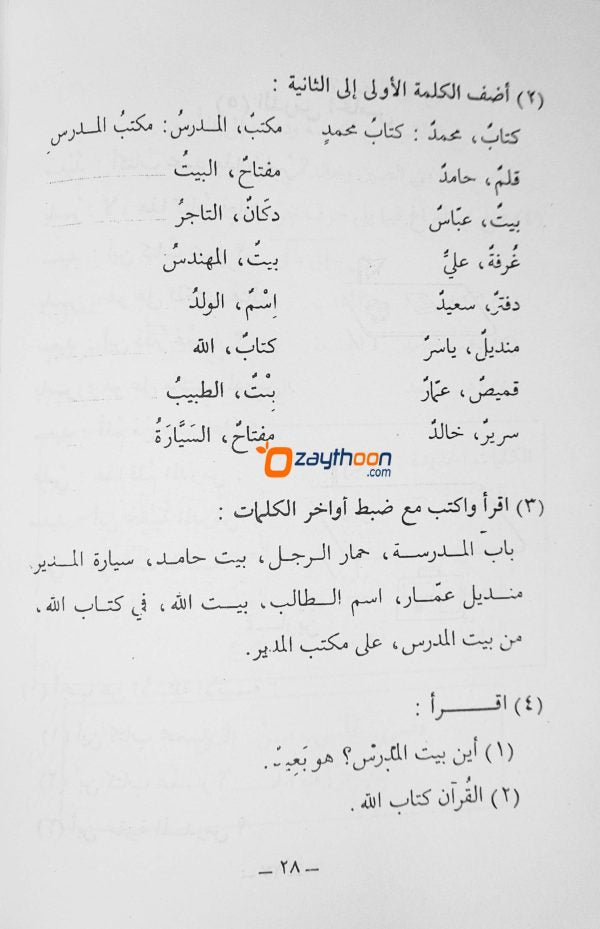 (٢) أضف الكلمة الأولى إلى الثانية :
كتابٌ، محمدٌ : كتابُ محمدٍ مكتبٌ، المدرسُ : مكتبُ المدرسِ
قلمٌ، حامدٌ مفتاحٌ، البيتُ
بيتٌ، عبّاسٌ دكّانٌ، التاجرُ
غُرفةٌ، عليٌّ بيتٌ، المهندسُ
دفترٌ، سعيدٌ اِسْمٌ، الولدُ
منديلٌ، ياسرٌ كتابٌ، الله
قميصٌ، عمّارٌ بِنْتٌ، الطبيبُ
سريرٌ، خالدٌ مفتاحٌ، السَيَّارَةُ
zaythoon.com
(٣) اقرأ واكتب مع ضبط أواخر الكلمات :
باب المدرسة، حمار الرجل، بيت حامد، سيارة المدير.
منديل عمّار، اسم الطالب، بيت الله، في كتاب الله،
من بيت المدرس، على مكتب المدير.
(٤) اقـــرأ :
(١) أين بيت المدرّس؟ هو بَعِيد.
(٢) القُرآن كتاب الله.
– ٢٨ –